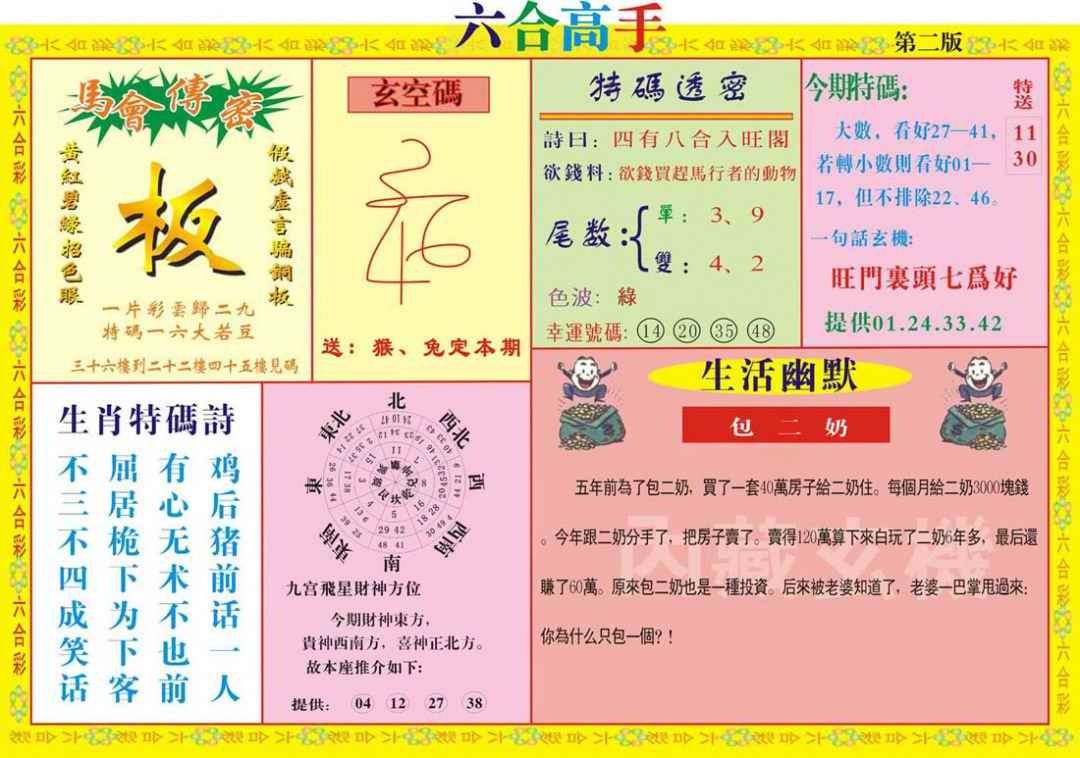 六合高手
第二版
馬會傳密
黃紅碧綠招色眼
板
假戲虛言騙銅板
一片彩雲歸二九
特碼一六大若豆
三十六樓到二十二樓四十五樓見碼
玄空碼
送：猴、兔定本期
特碼透密
詩曰：四有八合入旺閣
欲錢料：欲錢買趕馬行者的動物
尾数：
單：3、9
雙：4、2
色波：綠
幸運號碼：14 20 35 48
今期特碼:
特送
11
30
大數，看好27—41，
若轉小數則看好01—
17，但不排除22、46。
一句話玄機:
旺門裏頭七爲好
提供01.24.33.42
生肖特碼詩
鸡后猪前话一人
有心无术不也前
屈居桅下为下客
不三不四成笑话
北
西北
西
西南
南
東南
東
東北
九宫飛星財神方位
今期財神東方，
貴神西南方，喜神正北方。
故本座推介如下:
提供: 04 12 27 38
生活幽默
包二奶
五年前為了包二奶，買了一套40萬房子給二奶住。每個月給二奶3000塊錢
。今年跟二奶分手了，把房子賣了。賣得120萬算下來白玩了二奶6年多，最后還
賺了60萬。原來包二奶也是一種投資。后來被老婆知道了，老婆一巴掌甩過來：
你為什么只包一個？！
内藏玄機
六合彩